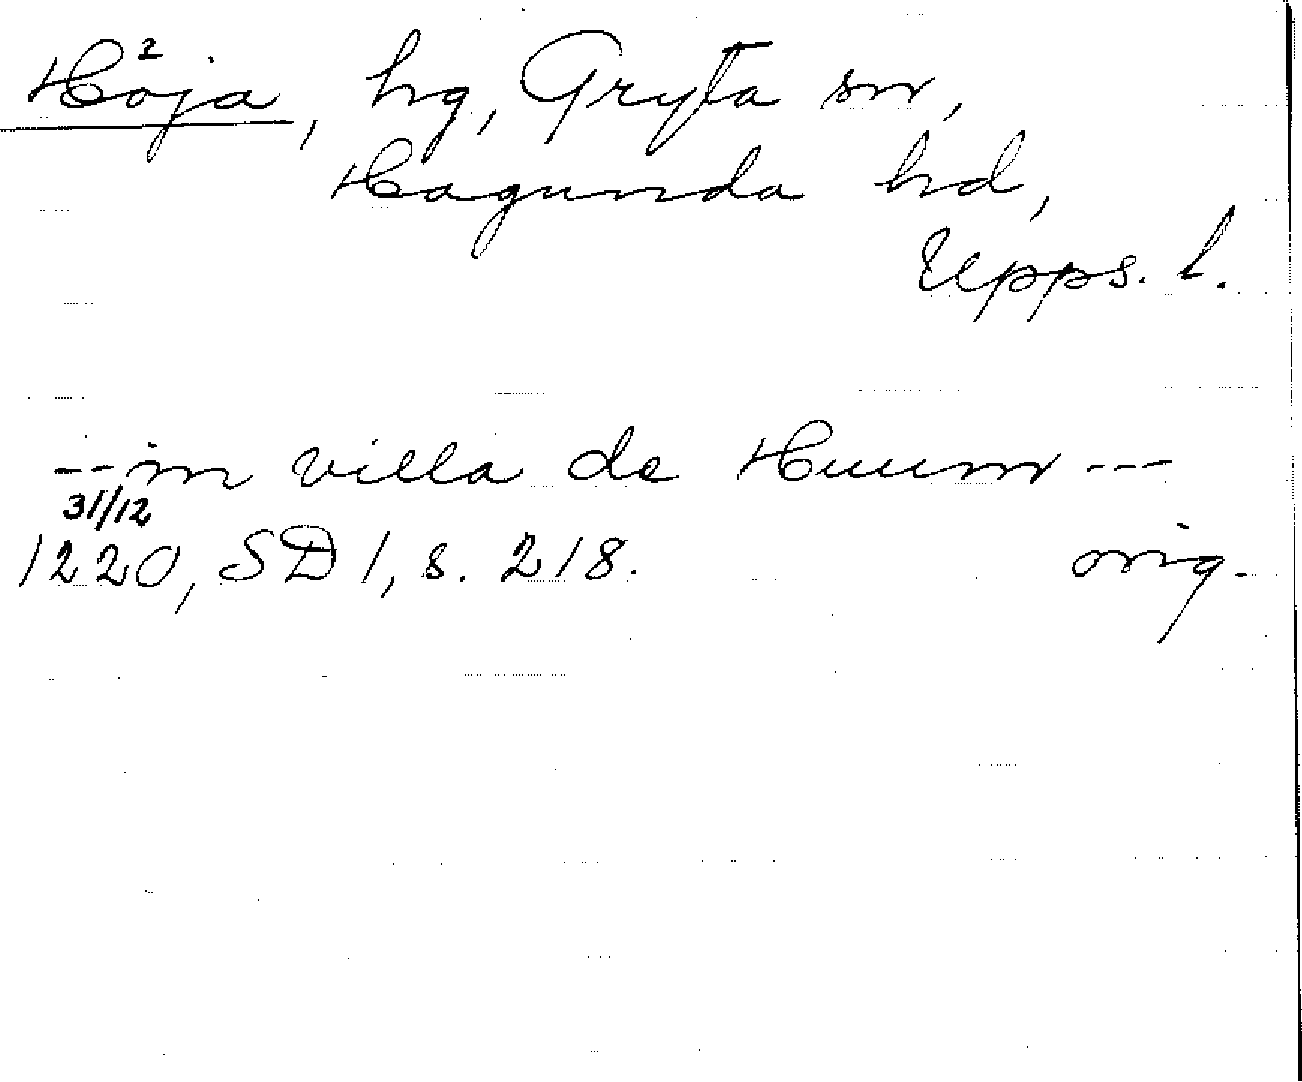 Höja, hg, Gryta sn,
Hagunda hd,
Upps. l.
--in villa de Huum ---
31/12
1220, SD 1, s. 218. orig.